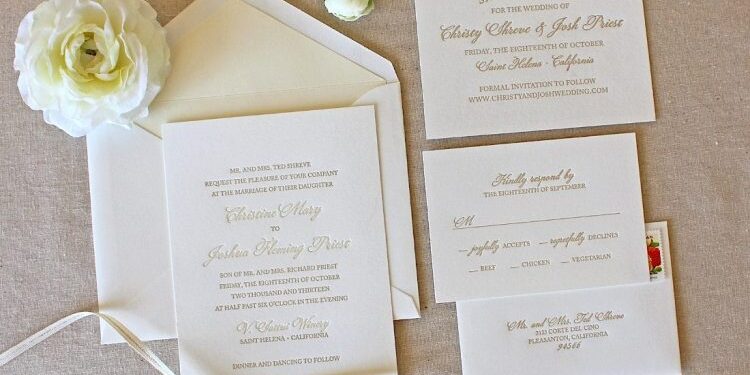 MR. AND MRS. TED SHREVE
REQUEST THE PLEASURE OF YOUR COMPANY
AT THE MARRIAGE OF THEIR DAUGHTER
Christine Mary
TO
Joshua Fleming Priest
SON OF MR. AND MRS. RICHARD PRIEST
FRIDAY, THE EIGHTEENTH OF OCTOBER
TWO THOUSAND AND THIRTEEN
AT HALF PAST SIX O'CLOCK IN THE EVENING
V. Sattui Winery
SAINT HELENA - CALIFORNIA
DINNER AND DANCING TO FOLLOW
FOR THE WEDDING OF
Christy Shreve & Josh Priest
FRIDAY, THE EIGHTEENTH OF OCTOBER
Saint Helena - California
FORMAL INVITATION TO FOLLOW
WWW.CHRISTYANDJOSHWEDDING.COM
Kindly respond by
THE EIGHTEENTH OF SEPTEMBER
M
joyfully ACCEPTS regretfully DECLINES
BEEF CHICKEN VEGETARIAN
Mr. and Mrs. Ted Shreve
2121 CORTE DEL CINO
PLEASANTON, CALIFORNIA
94566